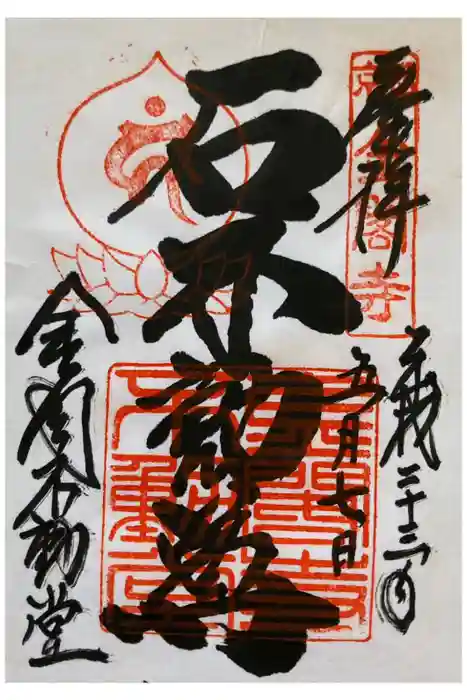 奉拝
金閣寺
平成二十三年
五月七日
石不動尊
金閣不動堂